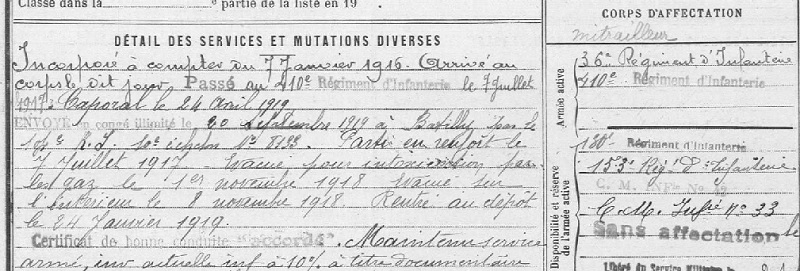 Classe dans la
e partie de la liste en 19
DÉTAIL DES SERVICES ET MUTATIONS DIVERSES
Incorporé à compter du 7 Janvier 1916. Arrivé au
corps le dit jour Passé au 410e Régiment d'Infanterie le 7 Juillet
1917. Caporal le 24 avril 1919
ENVOYÉ en congé illimité le 20 Septembre 1919 à par le
104e R.I. 10e échelon No 8133. Parti en renfort le
7 Juillet 1917 Evacué pour intoxication par
les gaz le 1er novembre 1918 Evacué sur
l'intérieur le 8 novembre 1918. Rentré au dépôt
le 24 Janvier 1919.
Certificat de bonne conduite "accordé". Maintenu service
armé, inv actuelle inf à 10% à titre documentaire
CORPS D'AFFECTATION
mitrailleur
Armée active
36e Régiment d'Infanterie
410e Régiment d'Infanterie
Disponibilité et réserve
de l'armée active
130e Régiment d'Infanterie
153e Rég. d'Infanterie
C. M. INFie No
C.M. Infie No 33
Sans affectation le